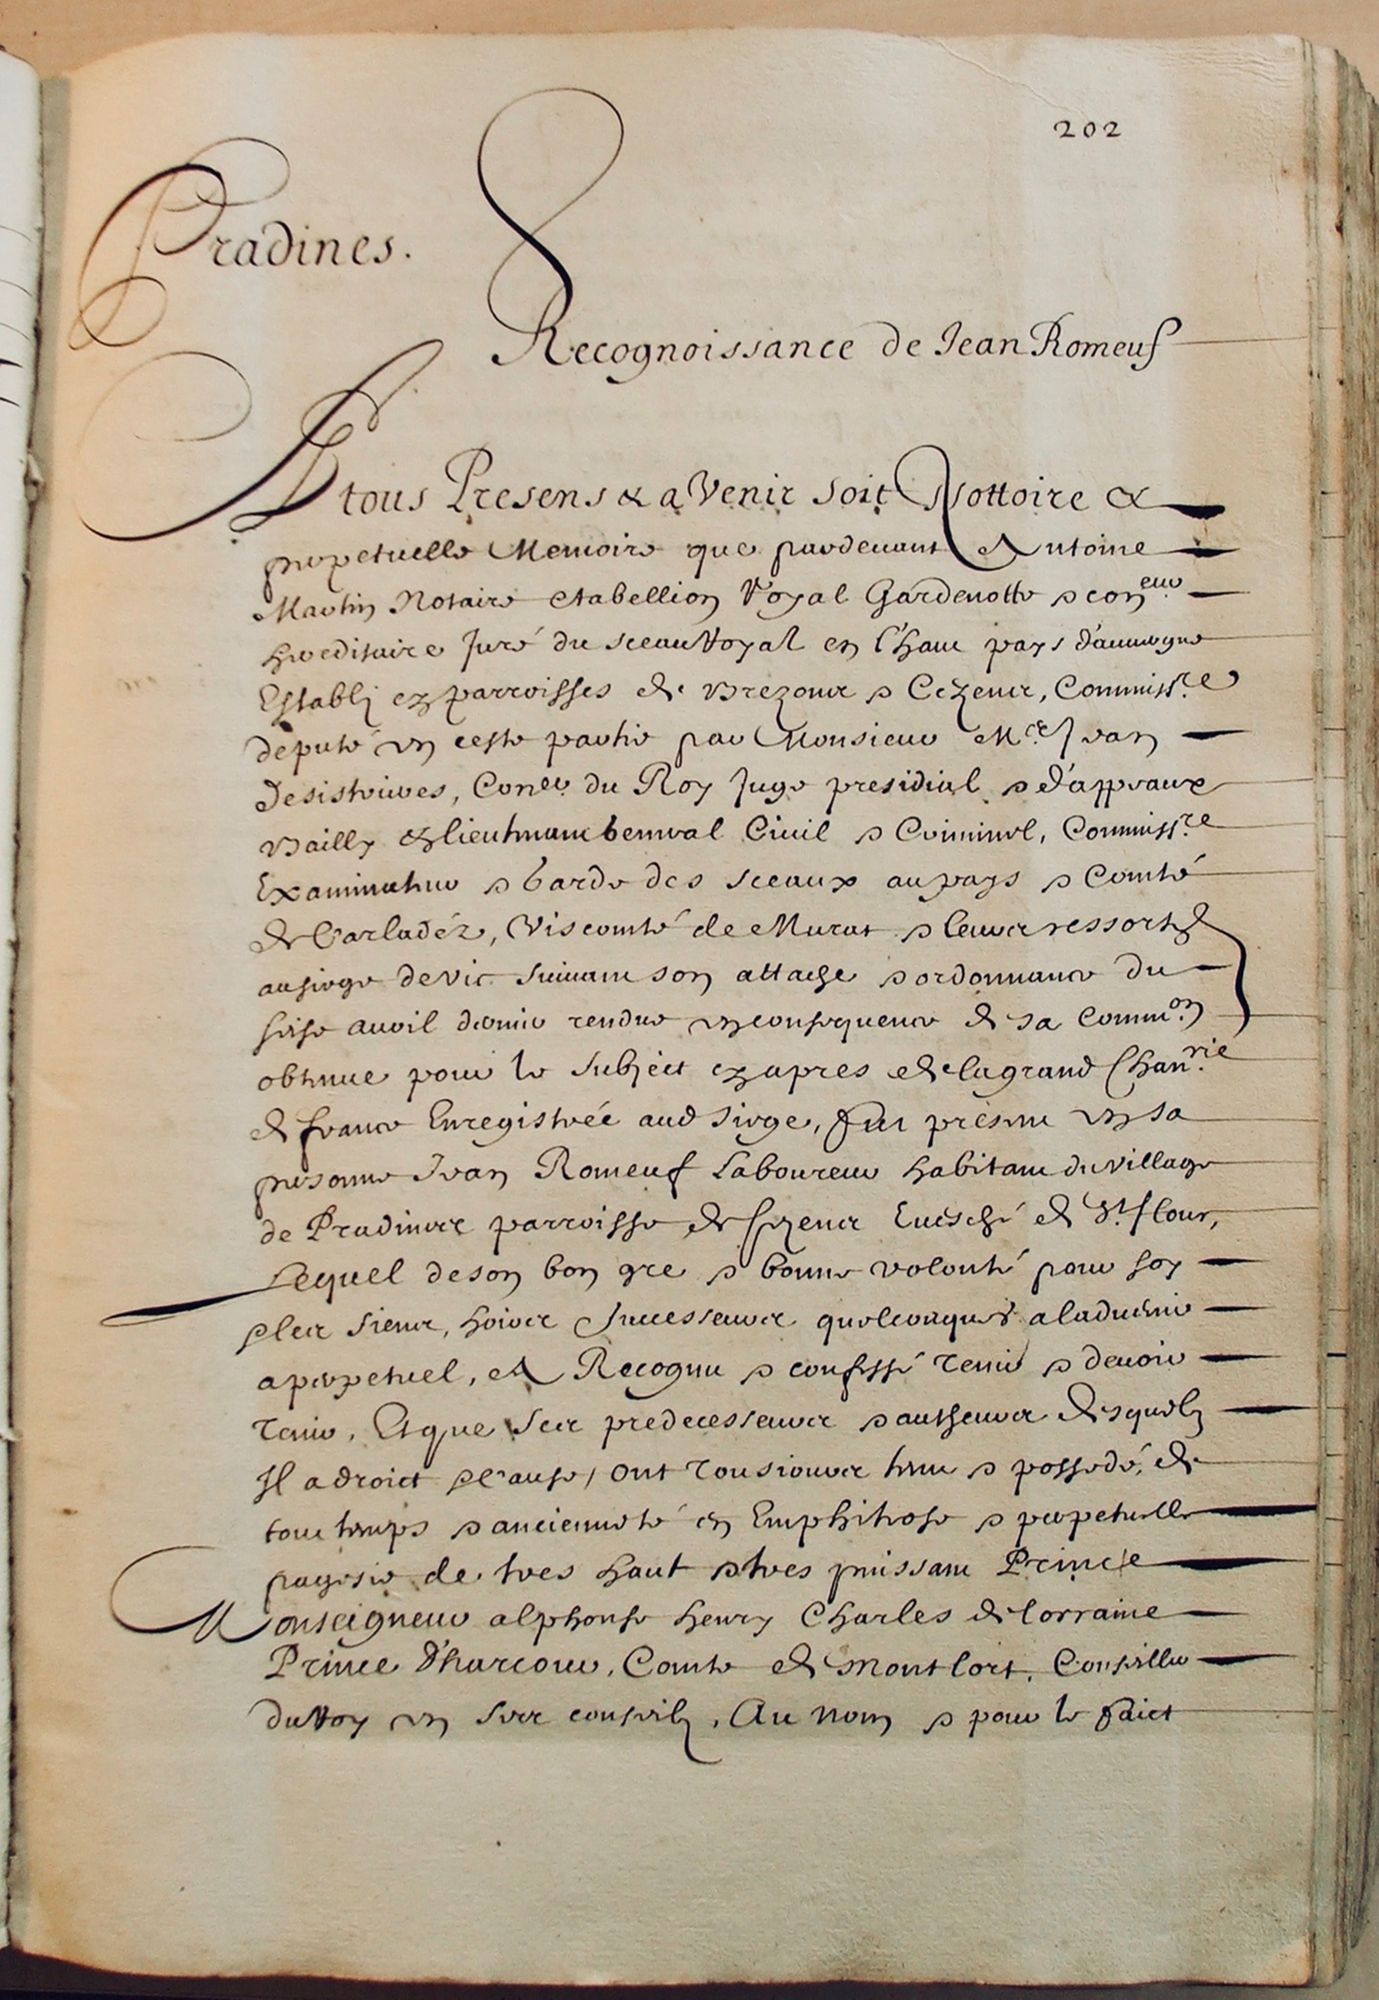 202
Pradines.
Recognoissance de Jean Romeuf
A tous Presens & a Venir soit Nottoire &
perpetuelle Memoire que pardevant Antoine
Martin Notaire & tabellion Royal Gardenotte & con.eur
hereditaire Juré du sceau Royal en l'haut pays d'auvergne
Estably ez parroisses de Brezons & Cezens, Commiss.re
deputé en ceste partie par Monsieur M.re Jean
Desistrieres, Con.er du Roy Juge presidial & d'appeaux
Bailly & lieutenant General Civil & Criminel, Commiss.re
Examinateur & Garde des sceaux au pays & Comté
de Carladéz, Viscomté de Murat & leurs ressortz
au siege de Vic suivant son attache & ordonnance du
seise avril dernier rendue en consequence de sa Comm.on
obtenue pour le subject ez apres de la grand Chan.rie
de france Enregistrée aud siege, fut présent en sa
personne Jean Romeuf Laboureur habitant du village
de Pradines parroisse de sezens Evesché de St. flour,
Lequel de son bon gre & bonne volonté pour soy
& les siens, hoirs successeurs quelconques a ladvenir
a perpetuel, A Recognu & confessé tenir & devoir
tenir, Et que ses predecesseurs & autheurs desquelz
Il a droict & cause, ont tousjours tenu & possedé, de
tout temps & ancienneté en Emphiteose & perpetuelle
pagesie de tres haut & tres puissant Prince
Monseigneur alphonse henry Charles de lorraine
Prince d'harcour, Comte de montlort, Conseiller
du Roy en ses conseilz, Au nom & pour le faict